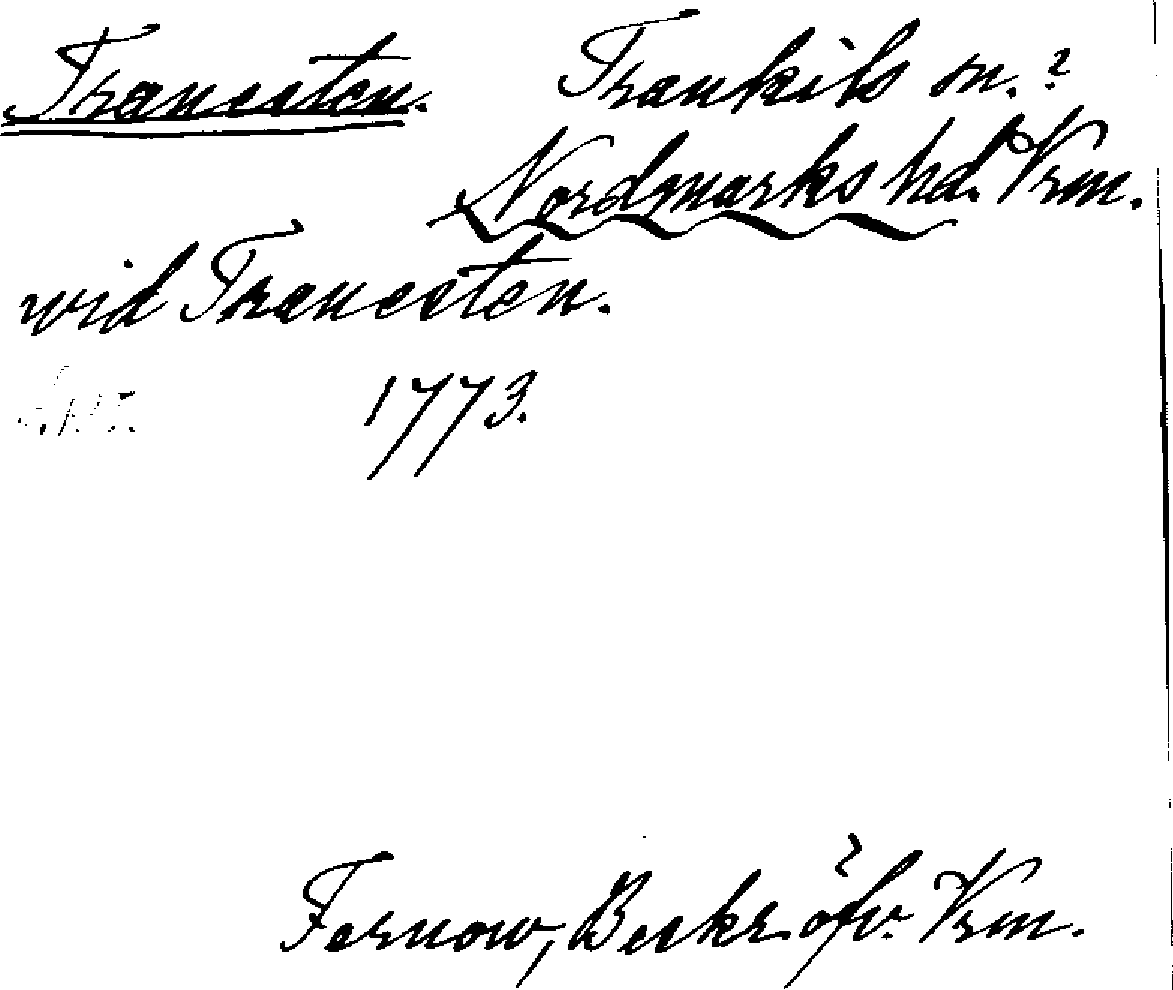 Tranesten. Trankils sn.?
Nordmarks hd. Vrm.
wid Tranesten.
1773.
Fernow, Beskr. öfv. Vrm.